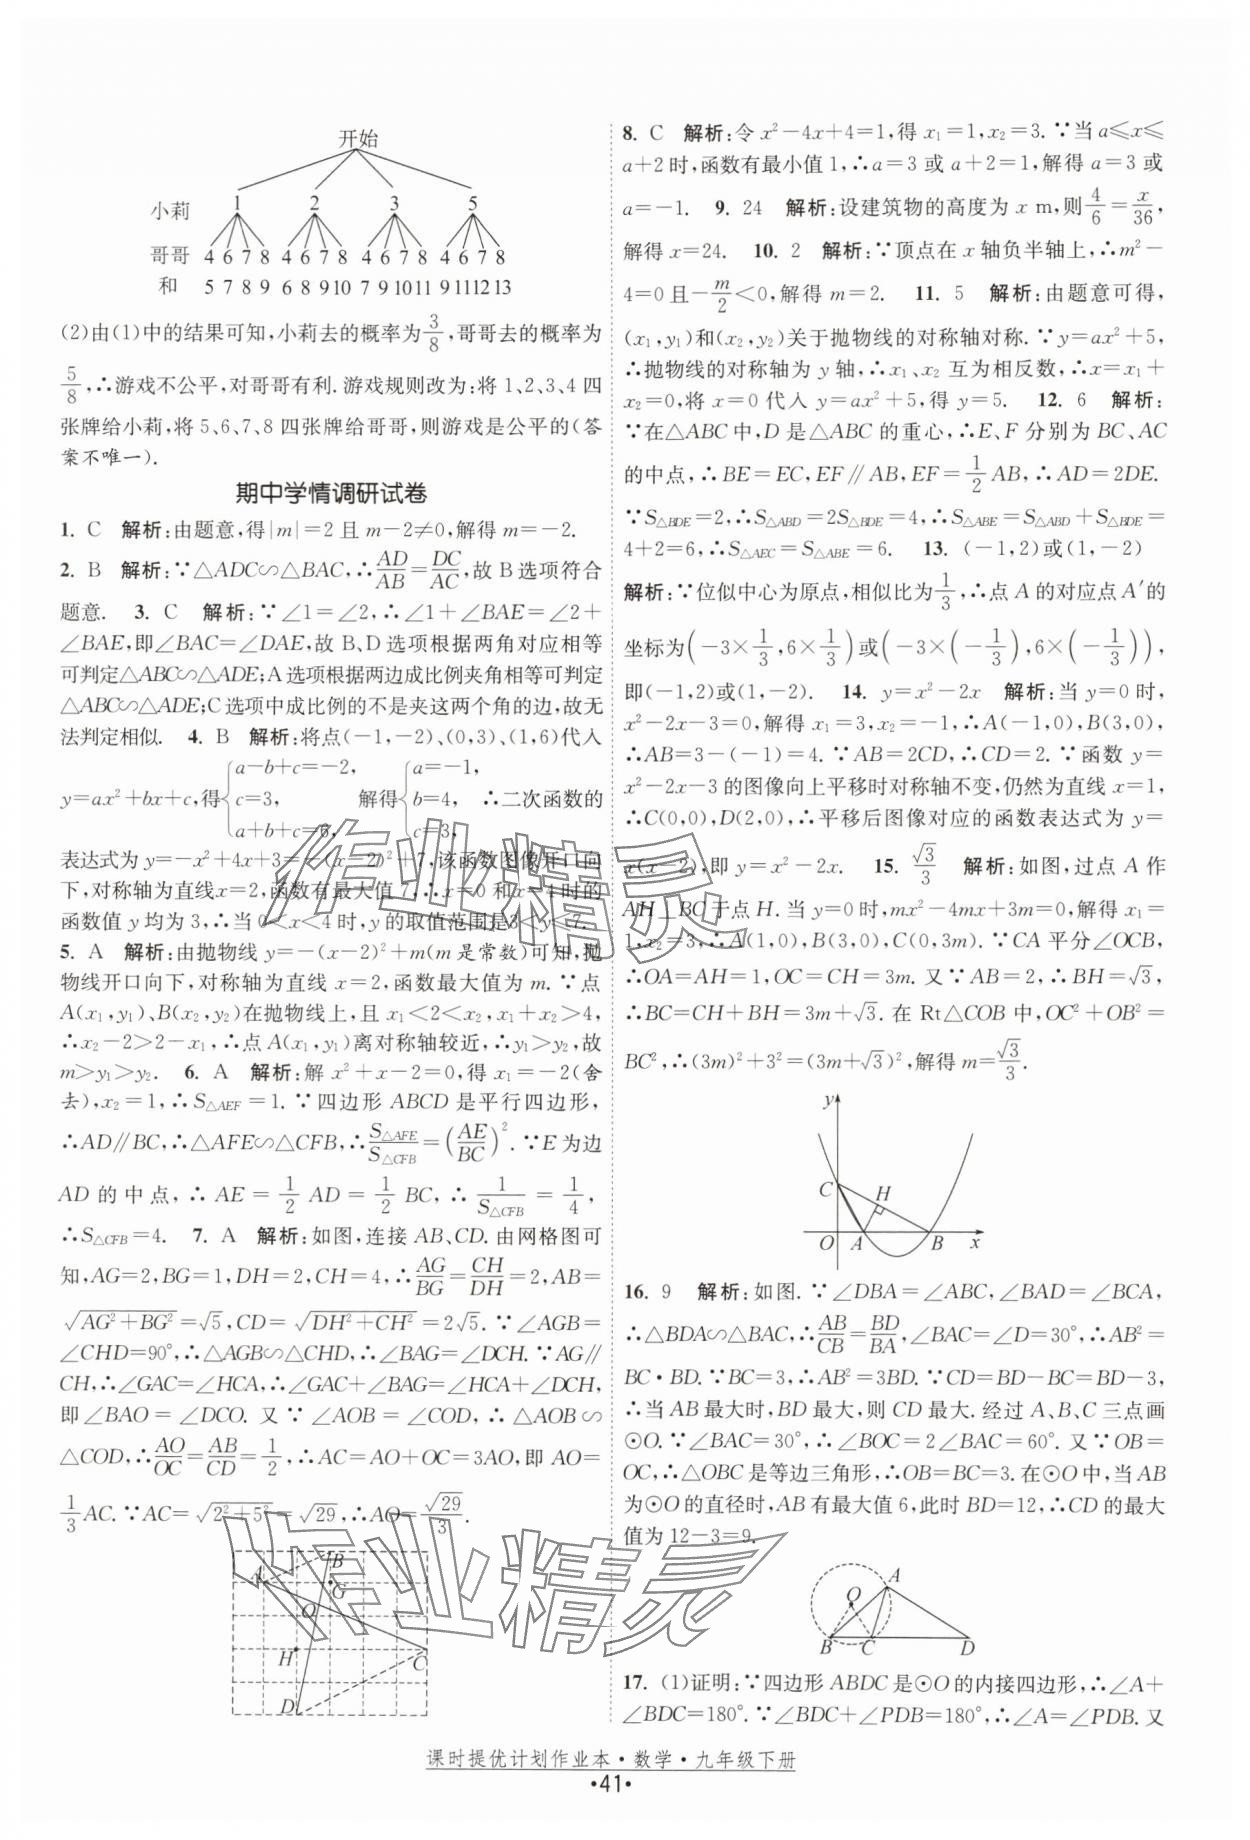 开始
小莉 1 2 3 5
哥哥 4 6 7 8 4 6 7 8 4 6 7 8 4 6 7 8
和 5 7 8 9 6 8 9 10 7 9 10 11 9 11 12 13
(2)由(1)中的结果可知,小莉去的概率为3/8,哥哥去的概率为
5/8,∴游戏不公平,对哥哥有利.游戏规则改为:将1、2、3、4四
张牌给小莉,将5、6、7、8四张牌给哥哥,则游戏是公平的(答
案不唯一).
期中学情调研试卷
1. C 解析:由题意,得|m|=2且m-2≠0,解得m=-2.
2. B 解析:∵△ADC∽△BAC,∴AD/AB=DC/AC,故B选项符合
题意. 3. C 解析:∵∠1=∠2,∴∠1+∠BAE=∠2+
∠BAE,即∠BAC=∠DAE,故B、D选项根据两角对应相等
可判定△ABC∽△ADE;A选项根据两边成比例夹角相等可判定
△ABC∽△ADE;C选项中成比例的不是夹这两个角的边,故无
法判定相似. 4. B 解析:将点(-1,-2)、(0,3)、(1,6)代入
y=ax²+bx+c,得{a-b+c=-2, c=3, a+b+c=6, 解得{a=-1, b=4, c=3, ∴二次函数的
表达式为y=-x²+4x+3=-(x-2)²+7,该函数图像开口向
下,对称轴为直线x=2,函数有最大值7,∴x=0和x=4时的
函数值y均为3,∴当0<x<4时,y的取值范围是3<y≤7.
5. A 解析:由抛物线y=-(x-2)²+m(m是常数)可知,抛
物线开口向下,对称轴为直线x=2,函数最大值为m.∵点
A(x₁,y₁)、B(x₂,y₂)在抛物线上,且x₁<2<x₂,x₁+x₂>4,
∴x₂-2>2-x₁,∴点A(x₁,y₁)离对称轴较近,∴y₁>y₂,故
m>y₁>y₂. 6. A 解析:解x²+x-2=0,得x₁=-2(舍
去),x₂=1,∴S△AEF=1.∵四边形ABCD是平行四边形,
∴AD∥BC,∴△AFE∽△CFB,∴S△AFE/S△CFB=(AE/BC)².∵E为边
AD的中点,∴AE=1/2AD=1/2BC,∴1/S△CFB=1/4,
∴S△CFB=4. 7. A 解析:如图,连接AB、CD.由网格图可
知,AG=2,BG=1,DH=2,CH=4,∴AG/BG=CH/DH=2,AB=
√(AG²+BG²)=√5,CD=√(DH²+CH²)=2√5.∵∠AGB=
∠CHD=90°,∴△AGB∽△CHD,∴∠BAG=∠DCH.∵AG∥
CH,∴∠GAC=∠HCA,∴∠GAC+∠BAG=∠HCA+∠DCH,
即∠BAO=∠DCO.又∵∠AOB=∠COD,∴△AOB∽
△COD,∴AO/OC=AB/CD=1/2,∴AC=AO+OC=3AO,即AO=
1/3AC.∵AC=√(2²+5²)=√29,∴AO=√29/3.
A B G O H C D
8. C 解析:令x²-4x+4=1,得x₁=1,x₂=3.∵当a≤x≤
a+2时,函数有最小值1,∴a=3或a+2=1,解得a=3或
a=-1. 9. 24 解析:设建筑物的高度为x m,则4/6=x/36,
解得x=24. 10. 2 解析:∵顶点在x轴负半轴上,∴m²-
4=0且-m/2<0,解得m=2. 11. 5 解析:由题意可得,
(x₁,y₁)和(x₂,y₂)关于抛物线的对称轴对称.∵y=ax²+5,
∴抛物线的对称轴为y轴,∴x₁、x₂互为相反数,∴x=x₁+
x₂=0,将x=0代入y=ax²+5,得y=5. 12. 6 解析:
∵在△ABC中,D是△ABC的重心,∴E、F分别为BC、AC
的中点,∴BE=EC,EF∥AB,EF=1/2AB,∴AD=2DE.
∵S△BDE=2,∴S△ABD=2S△BDE=4,∴S△ABE=S△ABD+S△BDE=
4+2=6,∴S△AEC=S△ABE=6. 13. (-1,2)或(1,-2)
解析:∵位似中心为原点,相似比为1/3,∴点A的对应点A′的
坐标为(-3×1/3,6×1/3)或(-3×(-1/3),6×(-1/3)),
即(-1,2)或(1,-2). 14. y=x²-2x 解析:当y=0时,
x²-2x-3=0,解得x₁=3,x₂=-1,∴A(-1,0),B(3,0),
∴AB=3-(-1)=4.∵AB=2CD,∴CD=2.∵函数y=
x²-2x-3的图像向上平移时对称轴不变,仍然为直线x=1,
∴C(0,0),D(2,0),∴平移后图像对应的函数表达式为y=
x(x-2),即y=x²-2x. 15. √3/3 解析:如图,过点A作
AH⊥BC于点H.当y=0时,mx²-4mx+3m=0,解得x₁=
1,x₂=3,∴A(1,0),B(3,0),C(0,3m).∵CA平分∠OCB,
∴OA=AH=1,OC=CH=3m.又∵AB=2,∴BH=√3,
∴BC=CH+BH=3m+√3.在Rt△COB中,OC²+OB²=
BC²,∴(3m)²+3²=(3m+√3)²,解得m=√3/3.
y C H O A B x
16. 9 解析:如图.∵∠DBA=∠ABC,∠BAD=∠BCA,
∴△BDA∽△BAC,∴AB/CB=BD/BA,∠BAC=∠D=30°,∴AB²=
BC·BD.∵BC=3,∴AB²=3BD.∵CD=BD-BC=BD-3,
∴当AB最大时,BD最大,则CD最大.经过A、B、C三点画
⊙O.∵∠BAC=30°,∴∠BOC=2∠BAC=60°.又∵OB=
OC,∴△OBC是等边三角形,∴OB=BC=3.在⊙O中,当AB
为⊙O的直径时,AB有最大值6,此时BD=12,∴CD的最大
值为12-3=9.
O A B C D
17. (1)证明:∵四边形ABDC是⊙O的内接四边形,∴∠A+
∠BDC=180°.∵∠BDC+∠PDB=180°,∴∠A=∠PDB.又
课时提优计划作业本·数学·九年级下册
·41·
作业精灵
作业精灵